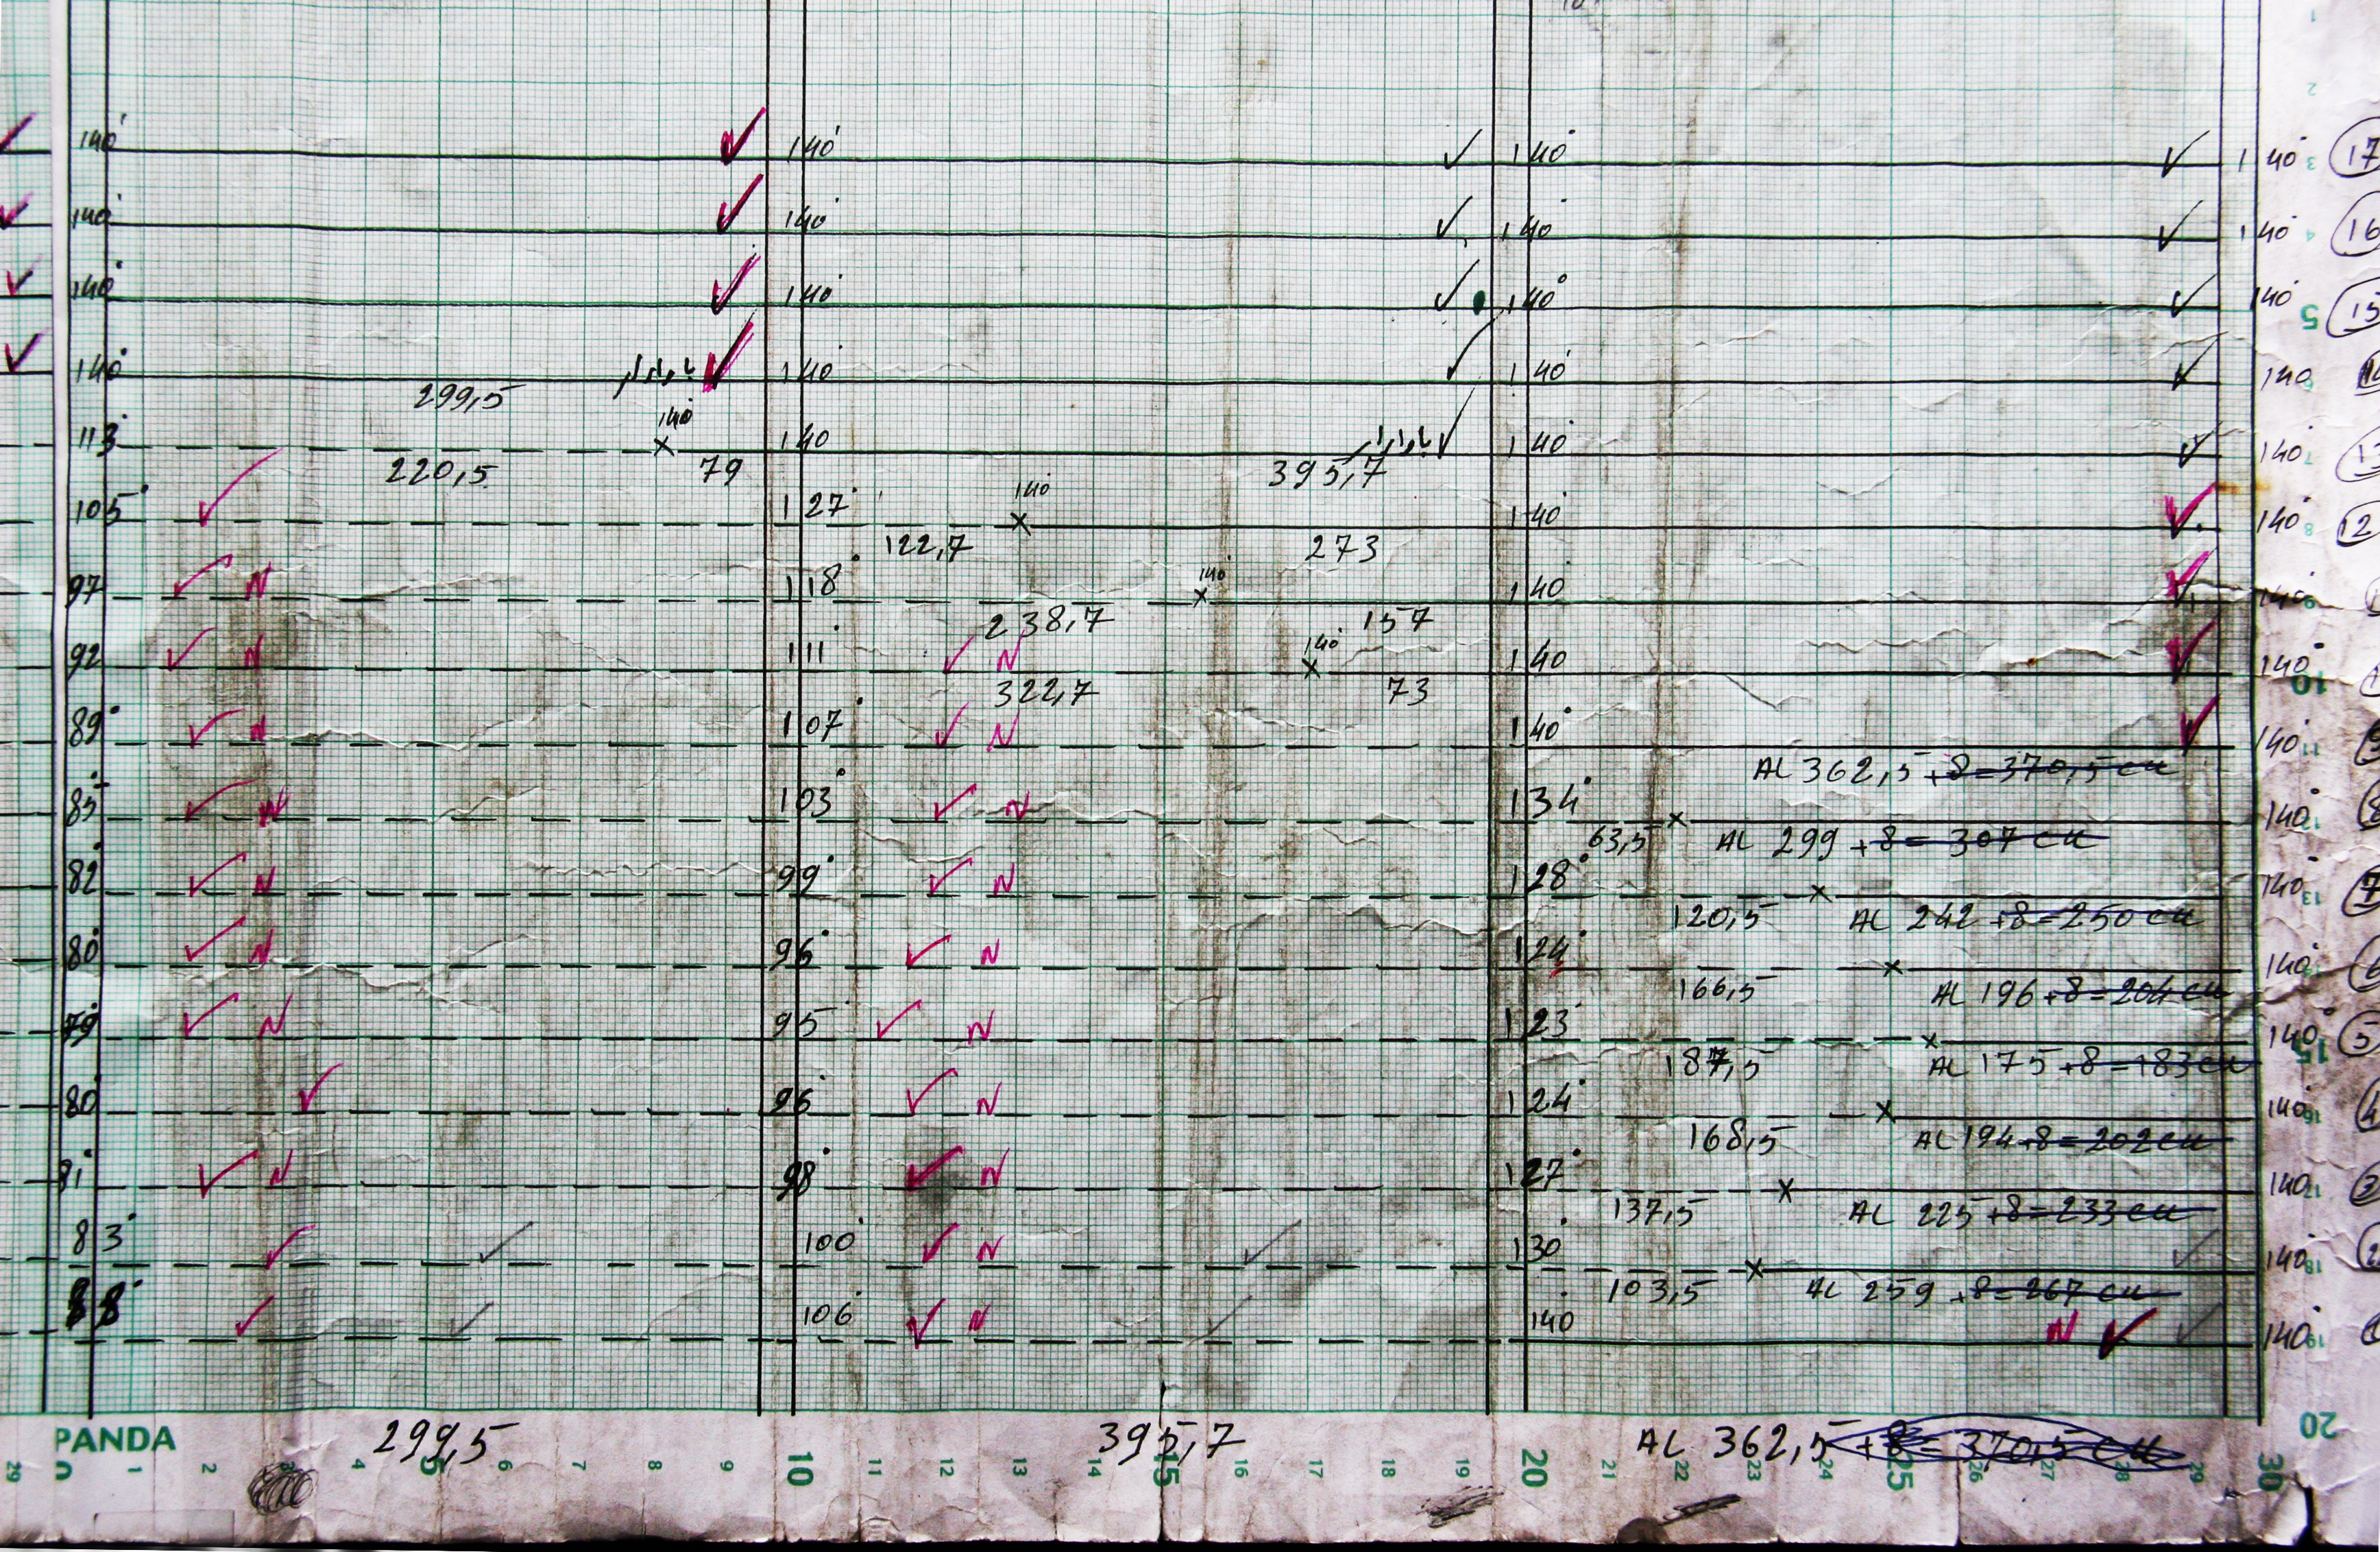 140 140 140 140 3 17
140 140 140 140 4 16
140 140 140° 140 5 15
140 140 140 140 6
299,5
140
113 140 140 140 7 13
220,5 79 395,7
140
105 127 140 140 8 12
122,7 273
140
97 N 118 140 140 9
238,7 157
140
92 N 111 N 140 140 10
322,7 73
89 N 107 N 140 140 11 9
AL 362,5 +8=370,5 cm
85 N 103 N 134 140 12 8
63,5 AL 299 +8= 307 cm
82 N 99 N 128 140 13 7
120,5 AL 242 +8=250 cm
80 N 96 N 124 140 6
166,5 AL 196 +8=204 cm
79 N 95 N 123 140 15 5
187,5 AL 175 +8=183 cm
80 96 N 124 140 16 4
168,5 AL 194 +8= 202 cm
81 N 98 N 127 140 17 3
137,5 AL 225 +8=233 cm
83 100 N 130 140 18 2
103,5 AL 259 +8=267 cm
88 106 N 140 N 140 19
20
PANDA 299,5 395,7 AL 362,5 +8= 370,5 cm
29 0 1 2 3 4 5 6 7 8 9 10 11 12 13 14 15 16 17 18 19 20 21 22 23 24 25 26 27 28 29 30